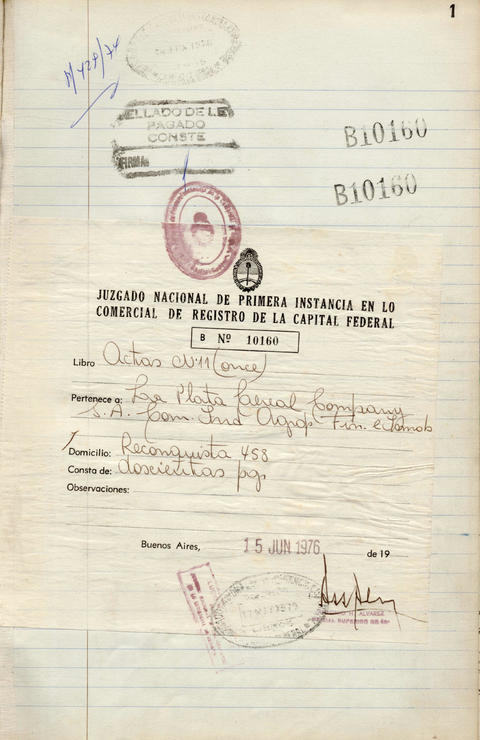 1
B10160
B10160
SELLADO DE LEY
PAGADO
CONSTE
FIRMA:
JUZGADO NACIONAL DE PRIMERA INSTANCIA EN LO
COMERCIAL DE REGISTRO DE LA CAPITAL FEDERAL
B Nº 10160
Libro Actas Nº 11 (once)
Pertenece a: La Plata Cereal Company
S.A. Com. Ind. Agrop. Fin. e Inmob
Domicilio: Reconquista 458
Consta de: doscientas pgs
Observaciones:
Buenos Aires, 15 JUN 1976 de 19
ALVAREZ